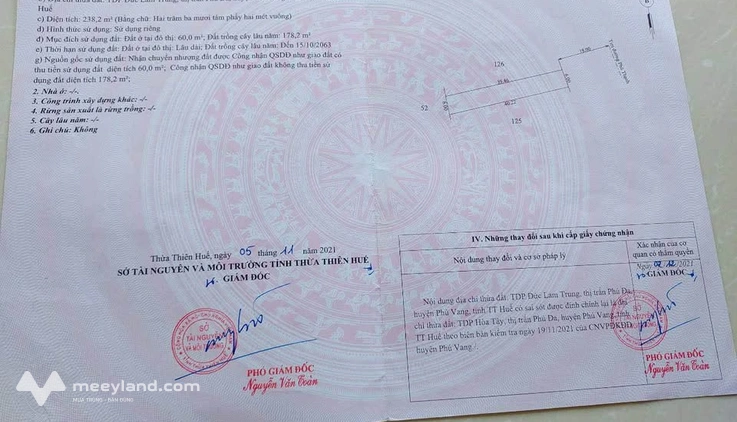 Huế
c) Diện tích: 238,2 m² (Bằng chữ: Hai trăm ba mươi tám phẩy hai mét vuông)
d) Hình thức sử dụng: Sử dụng riêng
đ) Mục đích sử dụng đất: Đất ở tại đô thị: 60,0 m²; Đất trồng cây lâu năm: 178,2 m²
e) Thời hạn sử dụng đất: Đất ở tại đô thị: Lâu dài; Đất trồng cây lâu năm: Đến 15/10/2063
g) Nguồn gốc sử dụng đất: Nhận chuyển nhượng đất được Công nhận QSDĐ như giao đất có
thu tiền sử dụng đất diện tích 60,0 m²; Công nhận QSDĐ như giao đất không thu tiền sử
dụng đất diện tích 178,2 m².
2. Nhà ở: -/-
3. Công trình xây dựng khác: -/-
4. Rừng sản xuất là rừng trồng: -/-
5. Cây lâu năm: -/-
6. Ghi chú: Không
126
52
125
40.22
18.00
Thừa Thiên Huế, ngày 05 tháng 11 năm 2021
SỞ TÀI NGUYÊN VÀ MÔI TRƯỜNG TỈNH THỪA THIÊN HUẾ
GIÁM ĐỐC
SỞ
TÀI NGUYÊN
VÀ MÔI TRƯỜNG
PHÓ GIÁM ĐỐC
Nguyễn Văn Toàn
IV. Những thay đổi sau khi cấp giấy chứng nhận
Nội dung thay đổi và cơ sở pháp lý
Xác nhận của cơ
quan có thẩm quyền
Nội dung địa chỉ thửa đất: TDP Đức Lam Trung, thị trấn Phú Đa,
huyện Phú Vang, tỉnh TT Huế có sai sót được đính chính lại là địa
chỉ thửa đất: TDP Hòa Tây, thị trấn Phú Đa, huyện Phú Vang, tỉnh
TT Huế theo biên bản kiểm tra ngày 19/11/2021 của CNVPĐKĐĐ
huyện Phú Vang.
Ngày 02/12/2021
GIÁM ĐỐC
PHÓ GIÁM ĐỐC
Nguyễn Văn Toàn
meeyland.com
MUA TRONG - BÁN RỘNG